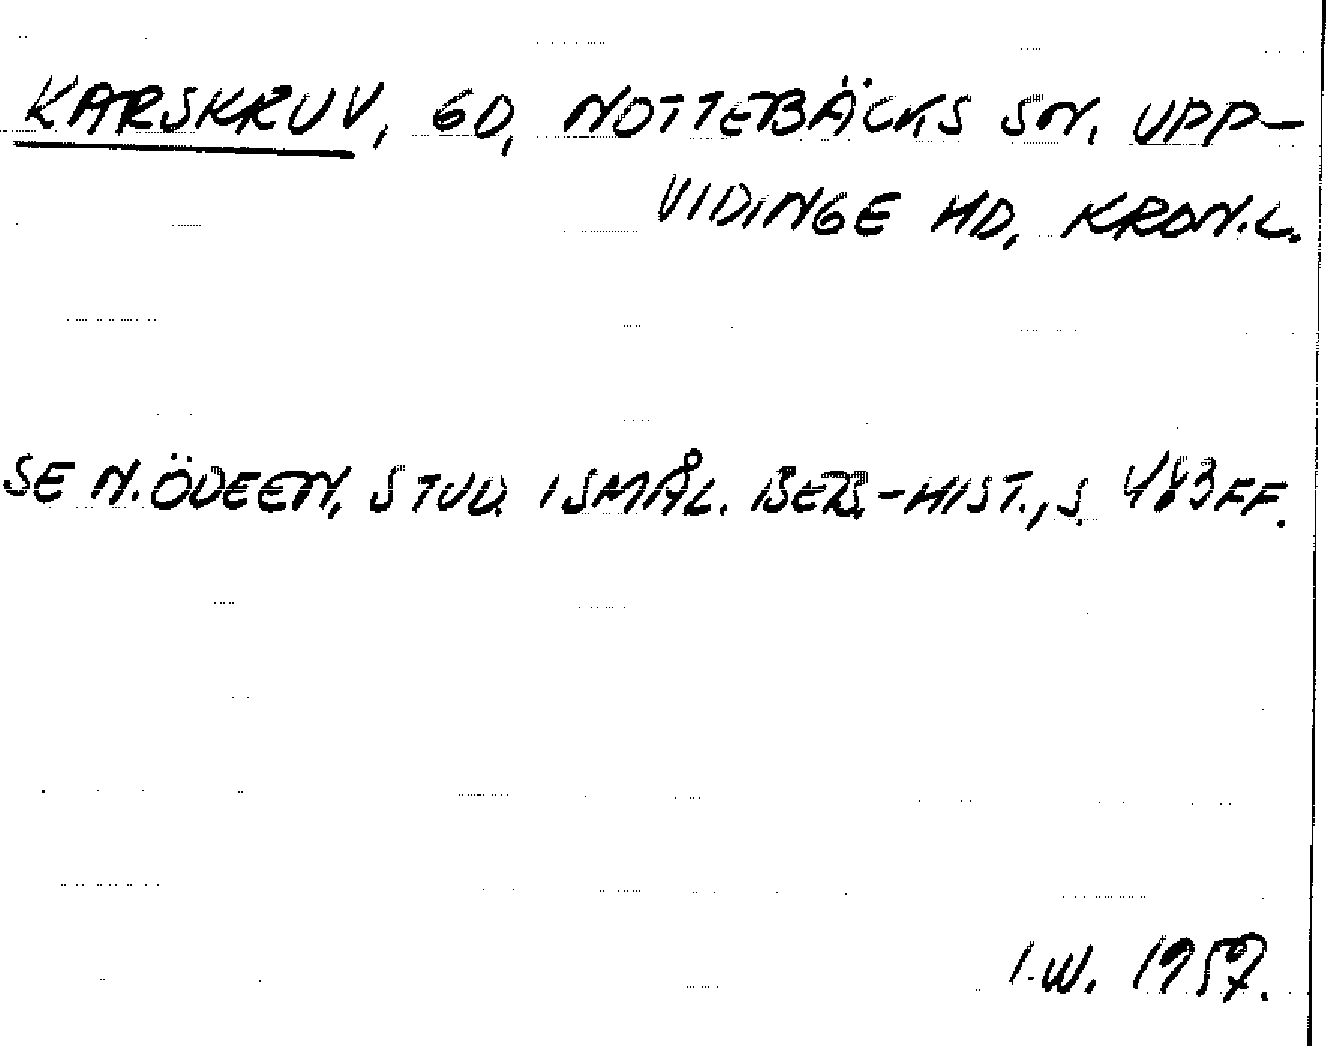 KARSKRUV, GD, NOTTEBÄCKS SN. UPP-
VIDINGE HD, KRON.L.
SE N. ÖDEEN, STUD. I SMÅL. BEB.-HIST., S. 443 FF.
I.W. 1957.